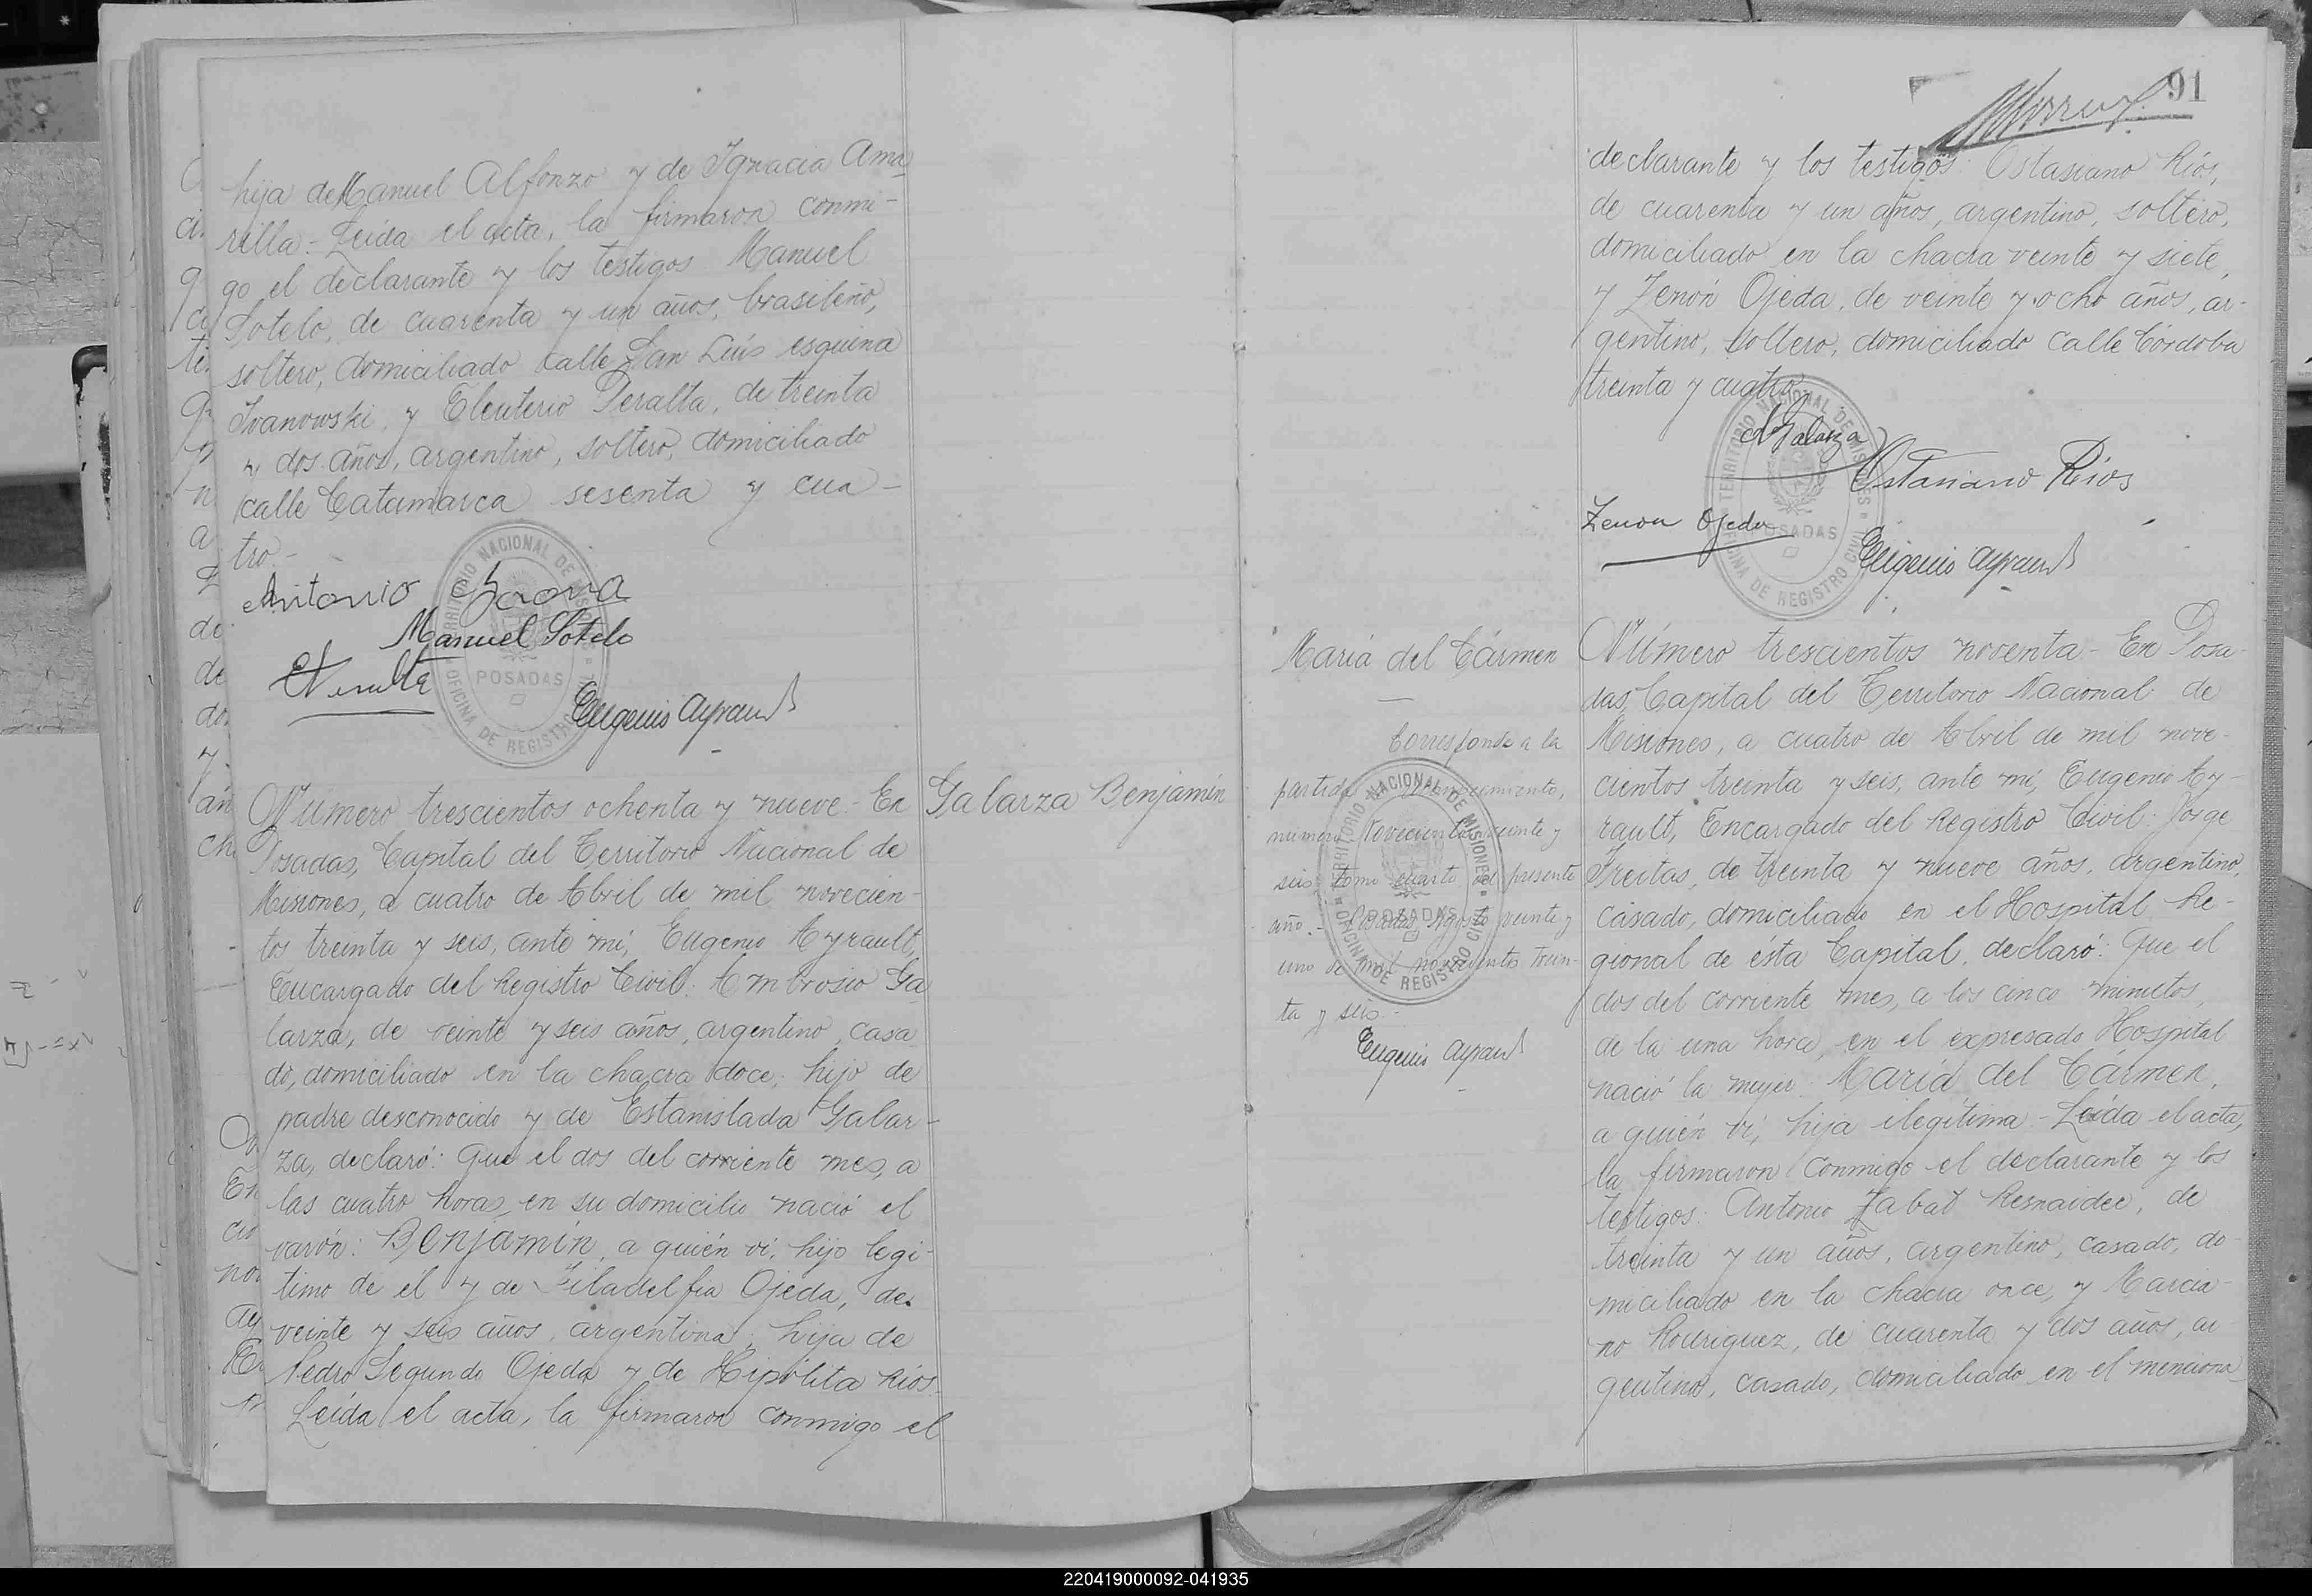 hija de Manuel Alfonzo y de Ignacia Ama
rilla.- Leída el acta, la firmaron conmi-
go el declarante y los testigos Manuel
Sotelo, de cuarenta y un años, brasileño,
soltero, domiciliado calle San Luis esquina
Ivanowski, y Eleuterio Peralta, de treinta
y dos años, argentino, soltero, domiciliado
calle Catamarca sesenta y cua-
tro.-
Antonio
Manuel Sotelo
Eugenio Ayrault
TERRITORIO NACIONAL DE MISIONES
POSADAS
OFICINA DE REGISTRO CIVIL
Número trescientos ochenta y nueve.- En
Posadas, Capital del Territorio Nacional de
Misiones, a cuatro de Abril de mil novecien-
tos treinta y seis, ante mí, Eugenio Ayrault,
Encargado del Registro Civil: Ambrosio Ga
larza, de veinte y seis años, argentino, casa
do, domiciliado en la chacra doce; hijo de
padre desconocido y de Estanislada Galar-
za, declaró: Que el dos del corriente mes, a
las cuatro horas, en su domicilio nació el
varón: Benjamín, a quién ví, hijo legí-
timo de él y de Filadelfia Ojeda, de
veinte y seis años, argentina, hija de
Pedro Segundo Ojeda y de Hipólita Ríos.
Leída el acta, la firmaron conmigo el
Galarza Benjamín
91
declarante y los testigos: Ostasiano Ríos,
de cuarenta y un años, argentino, soltero,
domiciliado en la chacra veinte y siete,
y Zenón Ojeda, de veinte y ocho años, ar-
gentino, soltero, domiciliado calle Córdoba
treinta y cuatro
A Galarza
Ostasiano Ríos
Zenon Ojeda
Eugenio Ayrault
TERRITORIO NACIONAL DE MISIONES
POSADAS
OFICINA DE REGISTRO CIVIL
María del Cármen
Corresponde a la
partida nacimiento,
número Novecientos veinte y
seis tomo cuarto del presente
año.- Posadas, Agosto veinte y
uno de mil novecientos trein-
ta y seis.-
Eugenio Ayrault
TERRITORIO NACIONAL DE MISIONES
POSADAS
OFICINA DE REGISTRO CIVIL
Número trescientos noventa.- En Posa-
das, Capital del Territorio Nacional de
Misiones, a cuatro de Abril de mil nove-
cientos treinta y seis, ante mí, Eugenio Ay-
rault, Encargado del Registro Civil: Jorge
Freitas, de treinta y nueve años, argentino,
casado, domiciliado en el Hospital Re-
gional de ésta Capital, declaró: Que el
dos del corriente mes, a los cinco minutos
de la una hora, en el expresado Hospital
nació la mujer: María del Cármen,
a quién ví, hija ilegítima.- Leída el acta,
la firmaron conmigo el declarante y los
testigos: Antonio Zabat Resnaidee, de
treinta y un años, argentino, casado, do
miciliado en la chacra once, y Marcia-
no Rodriguez, de cuarenta y dos años, ar
gentino, casado, domiciliado en el menciona
220419000092-041935